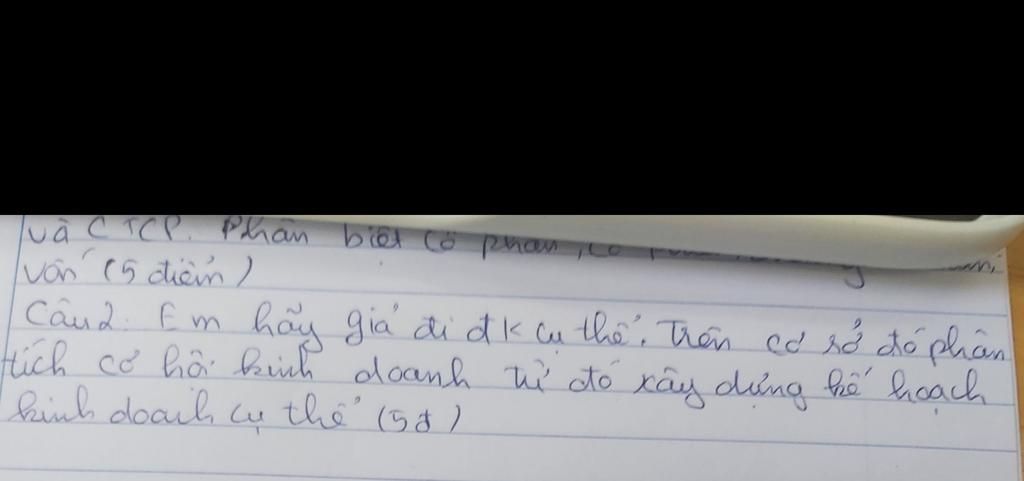 và CTCP. Phân biệt cổ phần, cổ
vốn (5 điểm)
Câu 2. Em hãy giả đi đk cụ thể. Trên cơ sở đó phân
tích cơ hội kinh doanh từ đó xây dựng kế hoạch
kinh doanh cụ thể (5đ)